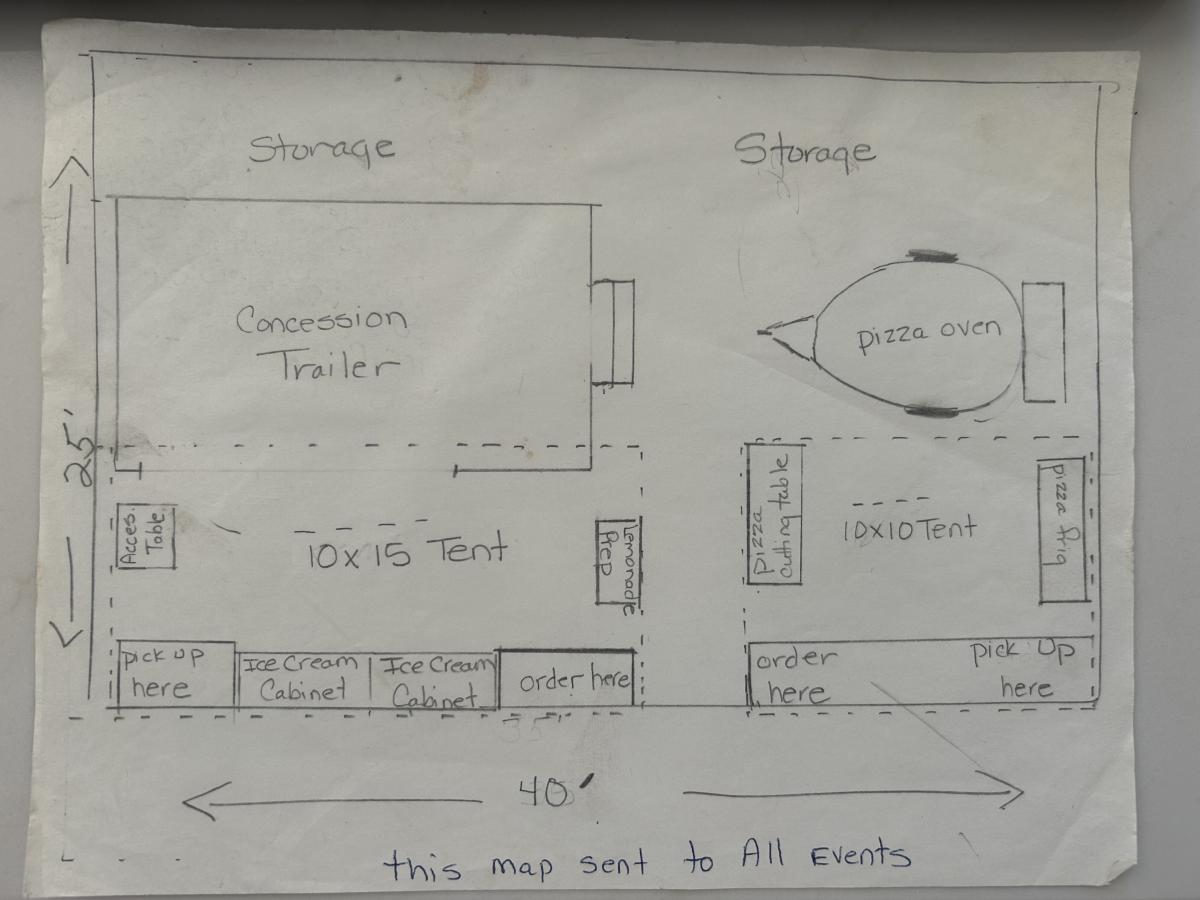 Storage
Storage
Concession
Trailer
pizza oven
25'
Acces.
Table
10x15 Tent
Lemonade
Prep
pizza
cutting table
10x10 Tent
pizza frig
pick up
here
Ice Cream
Cabinet
Ice Cream
Cabinet
order here
order
here
pick Up
here
40'
this map sent to All Events